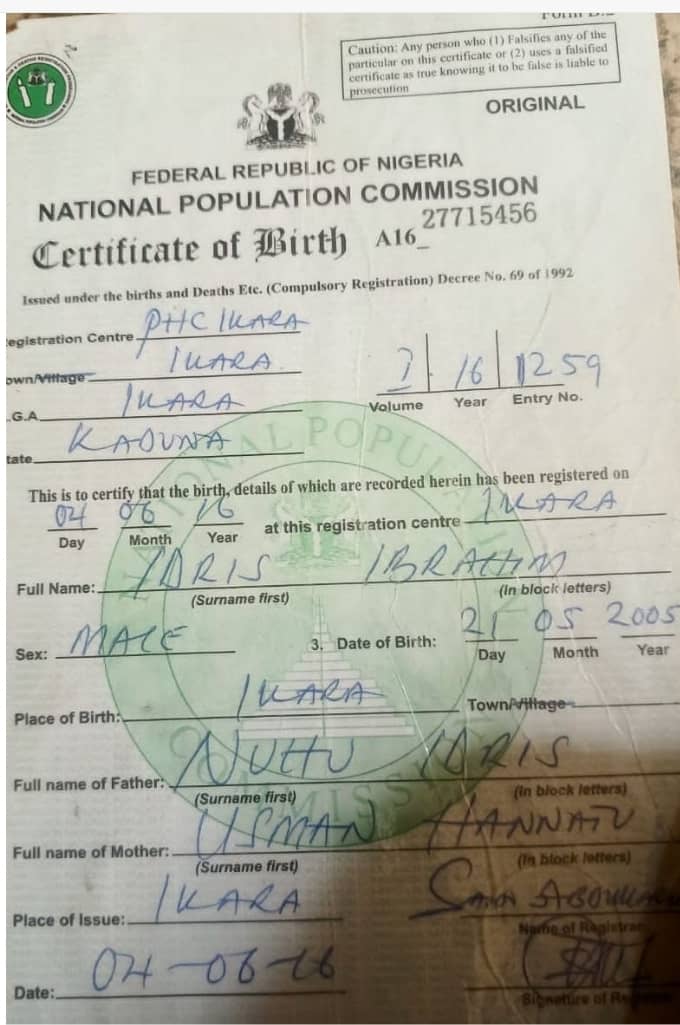 Caution: Any person who (1) Falsifies any of the
particular on this certificate or (2) uses a falsified
certificate as true knowing it to be false is liable to
prosecution
ORIGINAL
FEDERAL REPUBLIC OF NIGERIA
NATIONAL POPULATION COMMISSION
Certificate of Birth A16_ 27715456
Issued under the births and Deaths Etc. (Compulsory Registration) Decree No. 69 of 1992
egistration Centre PHC IKARA
own/Village IKARA
.G.A. IKARA
tate KADUNA
16 1259
Volume Year Entry No.
This is to certify that the birth, details of which are recorded herein has been registered on
04 06 16 at this registration centre IKARA
Day Month Year
Full Name: IDRIS IBRAHIM
(Surname first) (In block letters)
Sex: MALE 3. Date of Birth: 21 05 2005
Day Month Year
Place of Birth: IKARA Town/Village
Full name of Father: NUHU IDRIS
(Surname first) (In block letters)
Full name of Mother: USMAN HANNATU
(Surname first) (In block letters)
Place of Issue: IKARA
Name of Registrar
Date: 04-06-16
Signature of
NATIONAL POPULATION COMMISSION